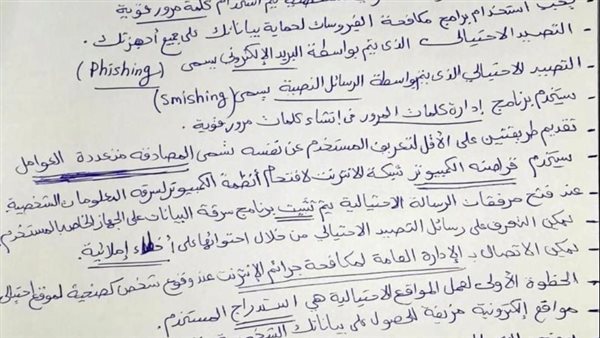 يجب استخدام برامج مكافحة الفيروسات لحماية بياناتك على جميع أجهزتك.
- التصيد الاحتيالي الذى يتم بواسطة البريد الإلكتروني يسمى (Phishing)
- التصيد الاحتيالي الذى يتم بواسطة الرسائل النصية يسمى (Smishing)
- ستخدم برنامج إدارة كلمات المرور فى إنشاء كلمات مرور قوية.
- تقديم طريقتين على الأقل لتعريف المستخدم عن نفسه تسمى المصادقه متعددة العوامل
- ستخدم قراصنه الكمبيوتر شبكة الانترنت لاقتحام أنظمة الكمبيوتر لسرقه المعلومات الشخصية.
- عند فتح مرفقات الرسالة الاحتيالية يتم تثبيت برنامج سرقة البيانات على الجهاز الخاص بالمستخدم
- يمكن التعرف على رسائل التصيد الاحتيالي من خلال احتوائها على أخطاء إملائية.
- يمكن الاتصال بـ الإدارة العامة لمكافحة جرائم الإنترنت عند وقوع شخص كضحية لموقع احتيالى
- الخطوة الأولى لعمل المواقع الاحتيالية هي استدراج المستخدم.
- مواقع إلكترونية مزيفة للحصول على بياناتك الشخصية